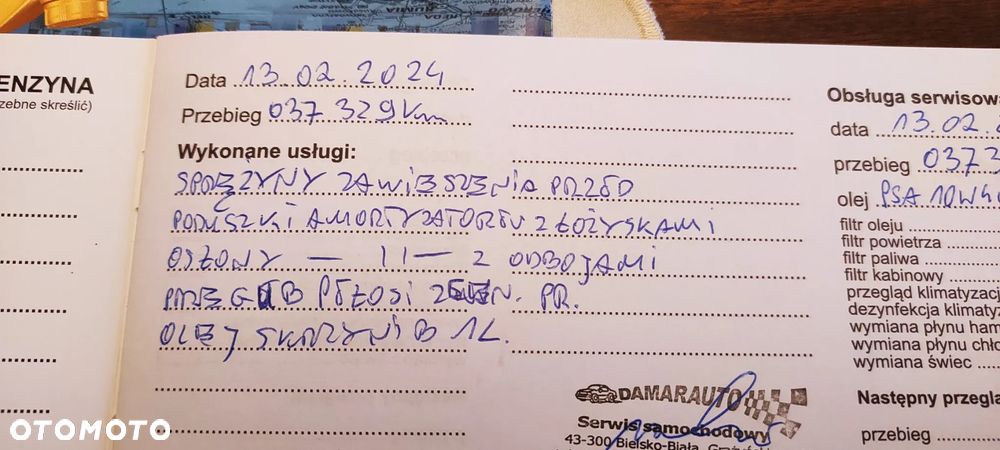 ENZYNA
zebne skreślić)
Data 13.02.2024
Przebieg 037 329 km
Wykonane usługi:
SPRĘŻYNY ZAWIESZENIA PRZÓD
PODUSZKI AMORTYZATORÓW Z ŁOŻYSKAMI
OSŁONY — 11 — Z ODBOJAMI
PRZEGUB PÓŁOSI ZEWN. PR.
OLEJ SKRZYNI B 1L.
DAMARAUTO
Serwis samochodowy
43-300 Bielsko-Biała,
Obsługa serwisowa
data 13.02.2
przebieg 0373
olej PSA 10W4
filtr oleju
filtr powietrza
filtr paliwa
filtr kabinowy
przegląd klimatyzacj
dezynfekcja klimatyz
wymiana płynu ham
wymiana płynu chło
wymiana świec
Następny przeglą
przebieg
OTOMOTO